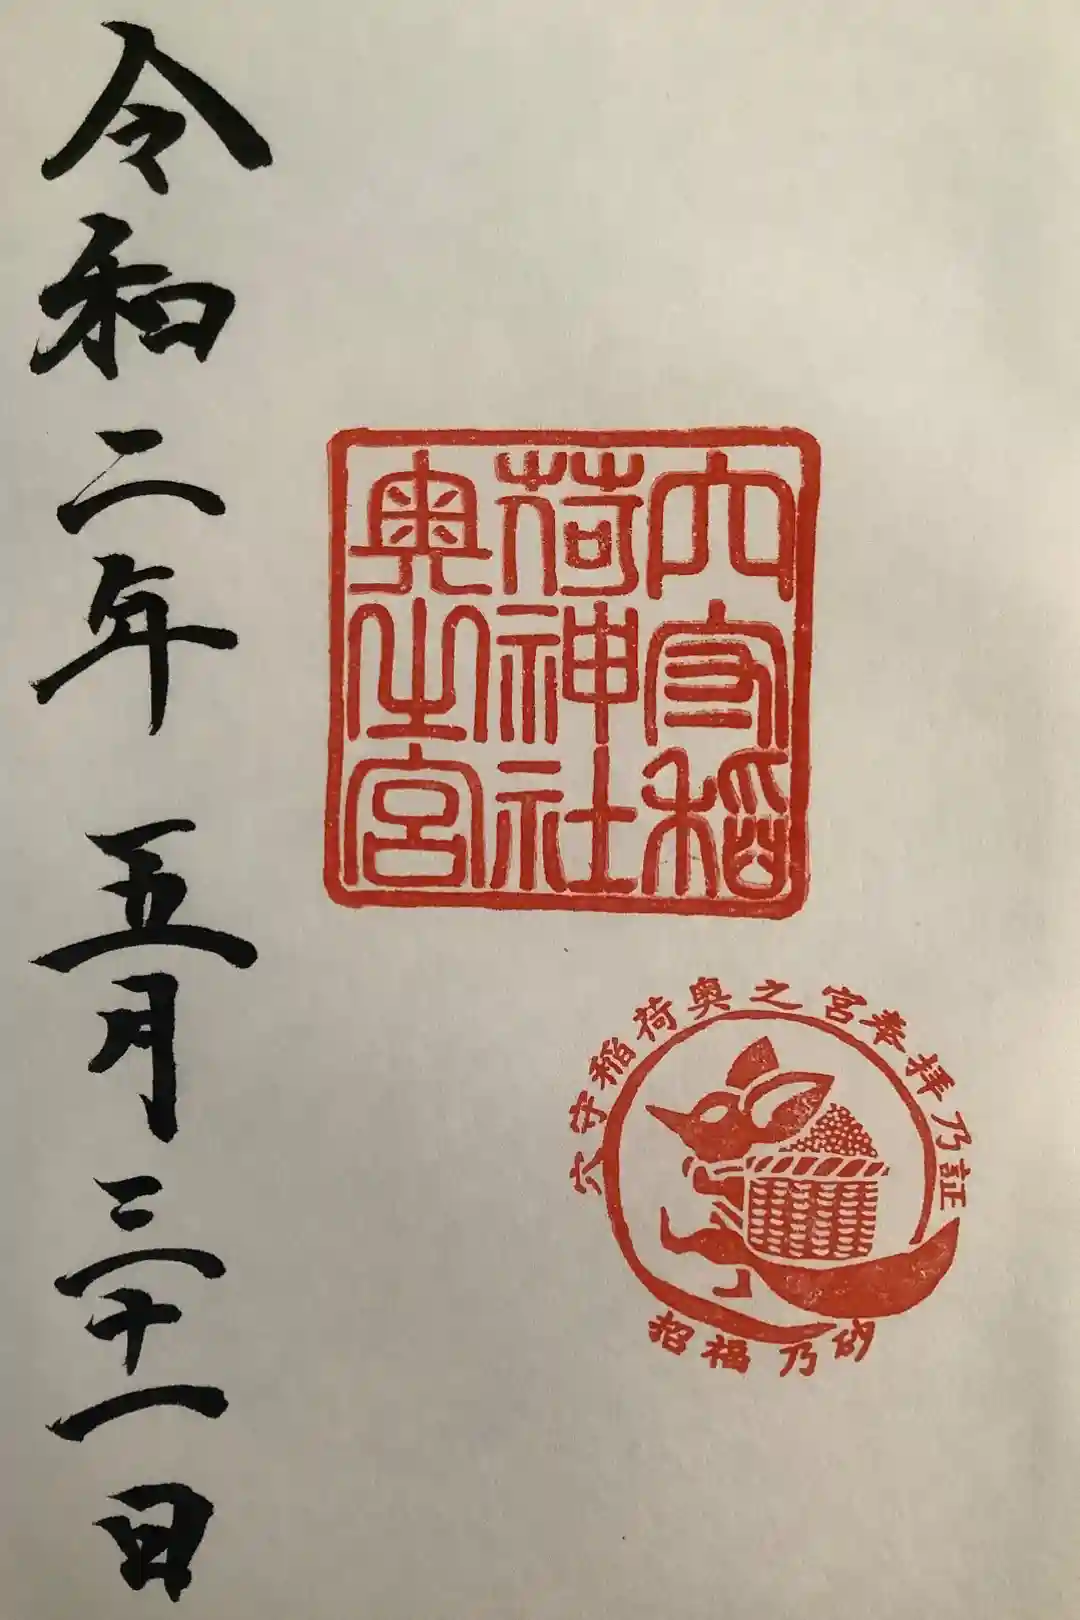 穴守稲
荷神社
奥之宮
穴守稲荷奥之宮奉拝乃証
招福乃砂
令和二年 五月三十一日